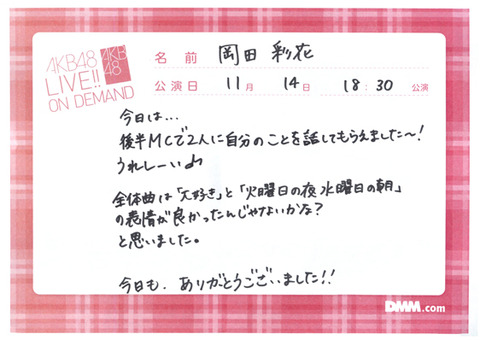 AKB48
LIVE!!
ON DEMAND
AKB
48
名前 岡田 彩花
公演日 11月 14日 18:30 公演
今日は...
後半MCで2人に自分のことを話してもらえました〜!
うれしーい♪
全体曲は「大好き」と「火曜日の夜、水曜日の朝」
の表情が良かったんじゃないかな?
と思いました。
今日も、ありがとうございました!!
DMM.com